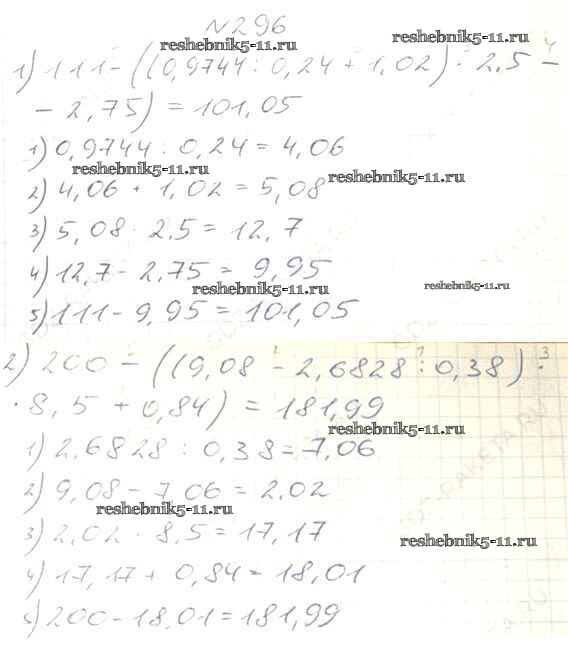 №296
reshebnik5-11.ru reshebnik5-11.ru
1) 111-((0,9744:0,24+1,02)·2,5-
-2,75)=101,05
1) 0,9744:0,24=4,06
reshebnik5-11.ru reshebnik5-11.ru
2) 4,06+1,02=5,08
3) 5,08·2,5=12,7
4) 12,7-2,75=9,95
reshebnik5-11.ru reshebnik5-11.ru
5) 111-9,95=101,05
2) 200-((9,08-2,6828:0,38)·
·8,5+0,84)=181,99
reshebnik5-11.ru
1) 2,6828:0,38=7,06
2) 9,08-7,06=2,02
reshebnik5-11.ru
3) 2,02·8,5=17,17
reshebnik5-11.ru
4) 17,17+0,84=18,01
5) 200-18,01=181,99